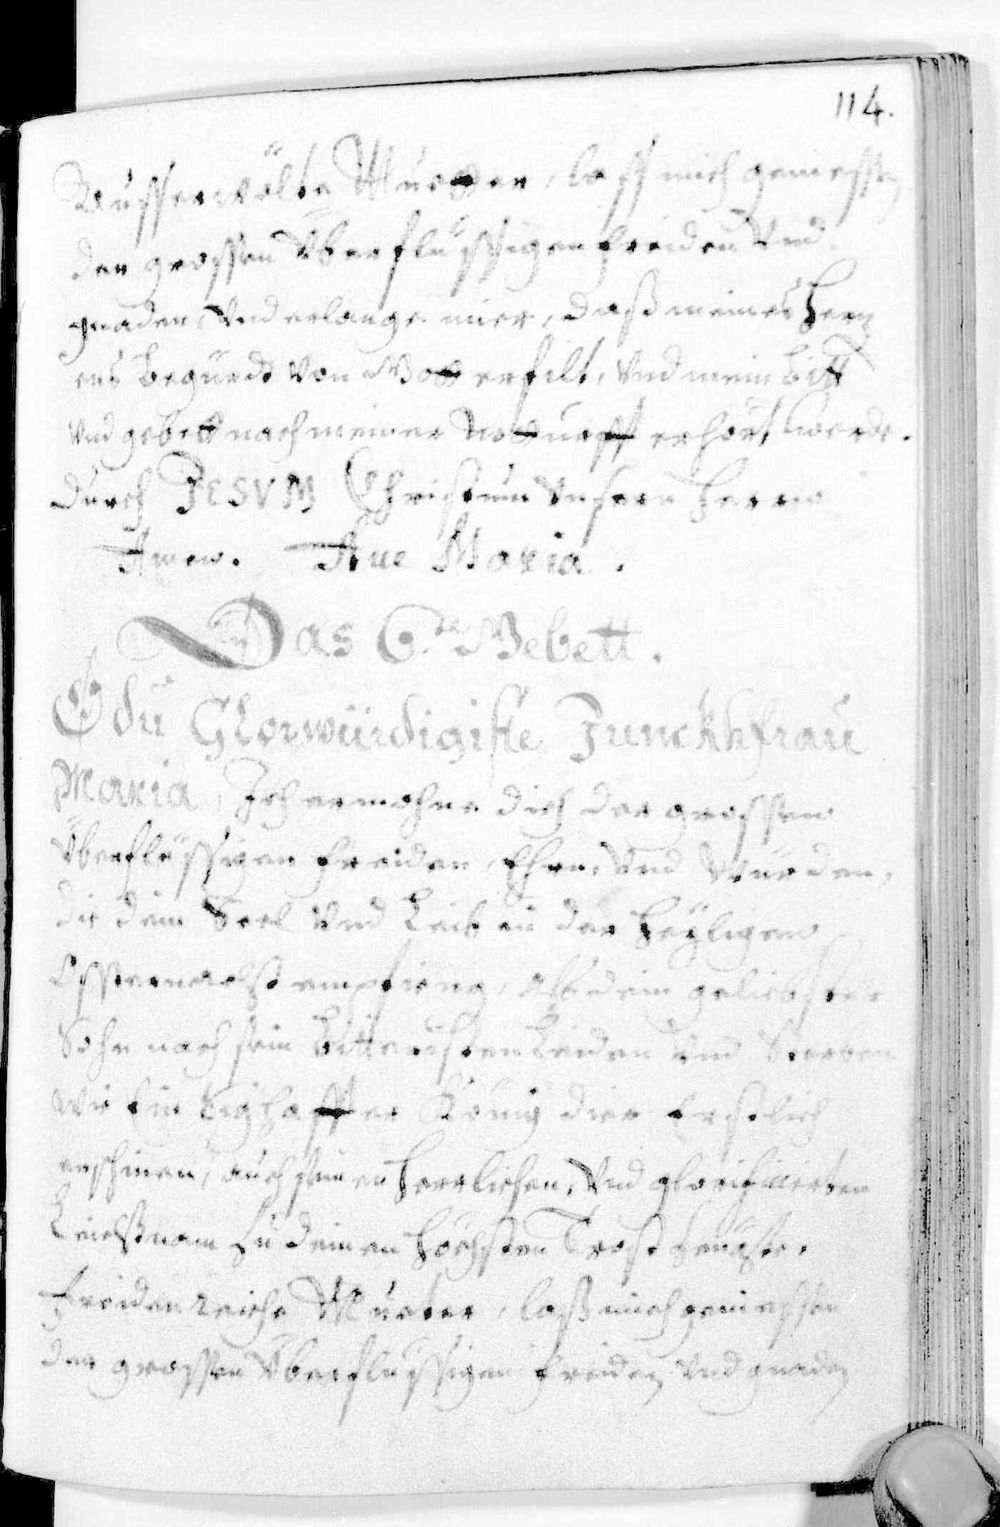 114.
Ausserwölte Muetter, lass mich geniessen
der grossen Überflüssigen freiden Vnd
gnaden, Vnd erlange mier, daß meines Herz
ens begürdt von Gott erfilt, Vnd mein bitt
Vnd gebett nach meiner Notturfft erhört werde.
durch JESVM Christum Vnsern Herrn
Amen. Aue Maria.
Das 6.te Gebett.
O du Glorwürdigiste Junckhfrau
Maria, Ich ermohne dich der grossen
Überflüssigen freiden, Ehrn, Vnd Würden,
die dein Seel Vnd Leib in der heyligen
Ossternacht empfieng, alß dein geliebster
Sohn nach sein bitteristen Leiden Vnd Sterben
wie Ein sighaffter König dier Erstlich
erschinen, auch seinen herrlichen, Vnd glorificierten
Leichnam zu deinen höchsten Trost zeugte.
Freidenreiche Mueter, laß mich geniessen
der grossen Überflüssigen freiden Vnd gnaden